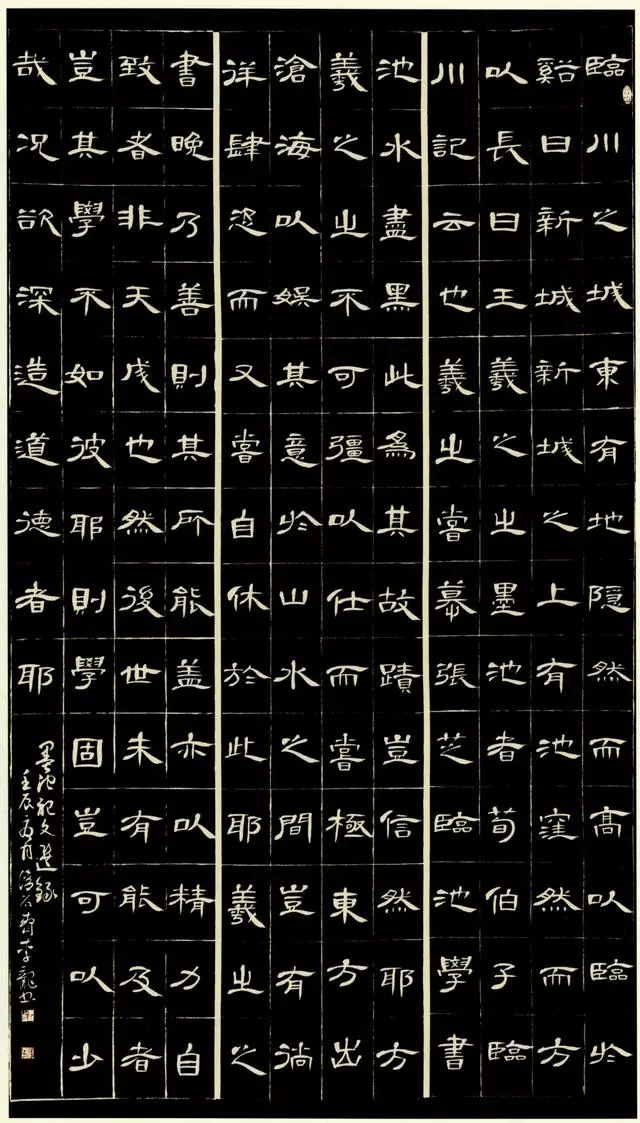 臨川之城東有地隱然而高以臨於
谿曰新城新城之上有池窪然而方
以長曰王羲之之墨池者荀伯子臨
川記云也羲之嘗慕張芝臨池學書
池水盡黑此為其故蹟豈信然耶方
羲之之不可彊以仕而嘗極東方出
滄海以娛其意於山水之間豈有徜
徉肆恣而又嘗自休於此耶羲之之
書晚乃善則其所能盖亦以精力自
致者非天成也然後世未有能及者
豈其學不如彼耶則學固豈可以少
哉况欲深造道德者耶
墨池記文選錄
壬辰 月 齊李龍書